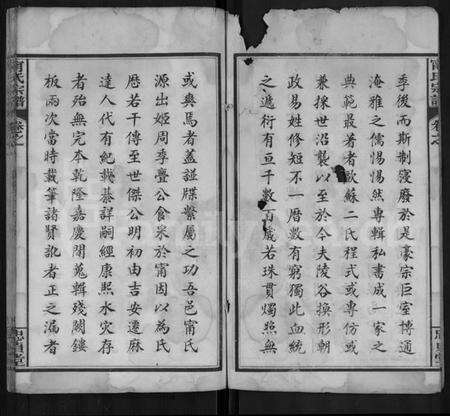 季後而斯制寢廢於是豪宗巨室博通
淹雅之儒惕惕然專輯私書成一家之
典範最著者歐蘇二氏程式或專仿或
兼採世沿襲以至於今夫陵谷換形朝
政易姓修短不一曆數有窮獨此血統
之遞衍有亘千數百歲若珠貫燭照無
或爽焉者蓋諡牒繫屬之功吾邑甯氏
源出姬周季亹公食采於甯因以為氏
歷若干傳至世傑公明初由吉安遷麻
達人代有紀載綦詳嗣經康熙水灾存
者殆無完本乾隆嘉慶間蒐輯殘闕鏤
板兩次當時載筆諸賢訛者正之漏者
甯氏宗譜
卷之